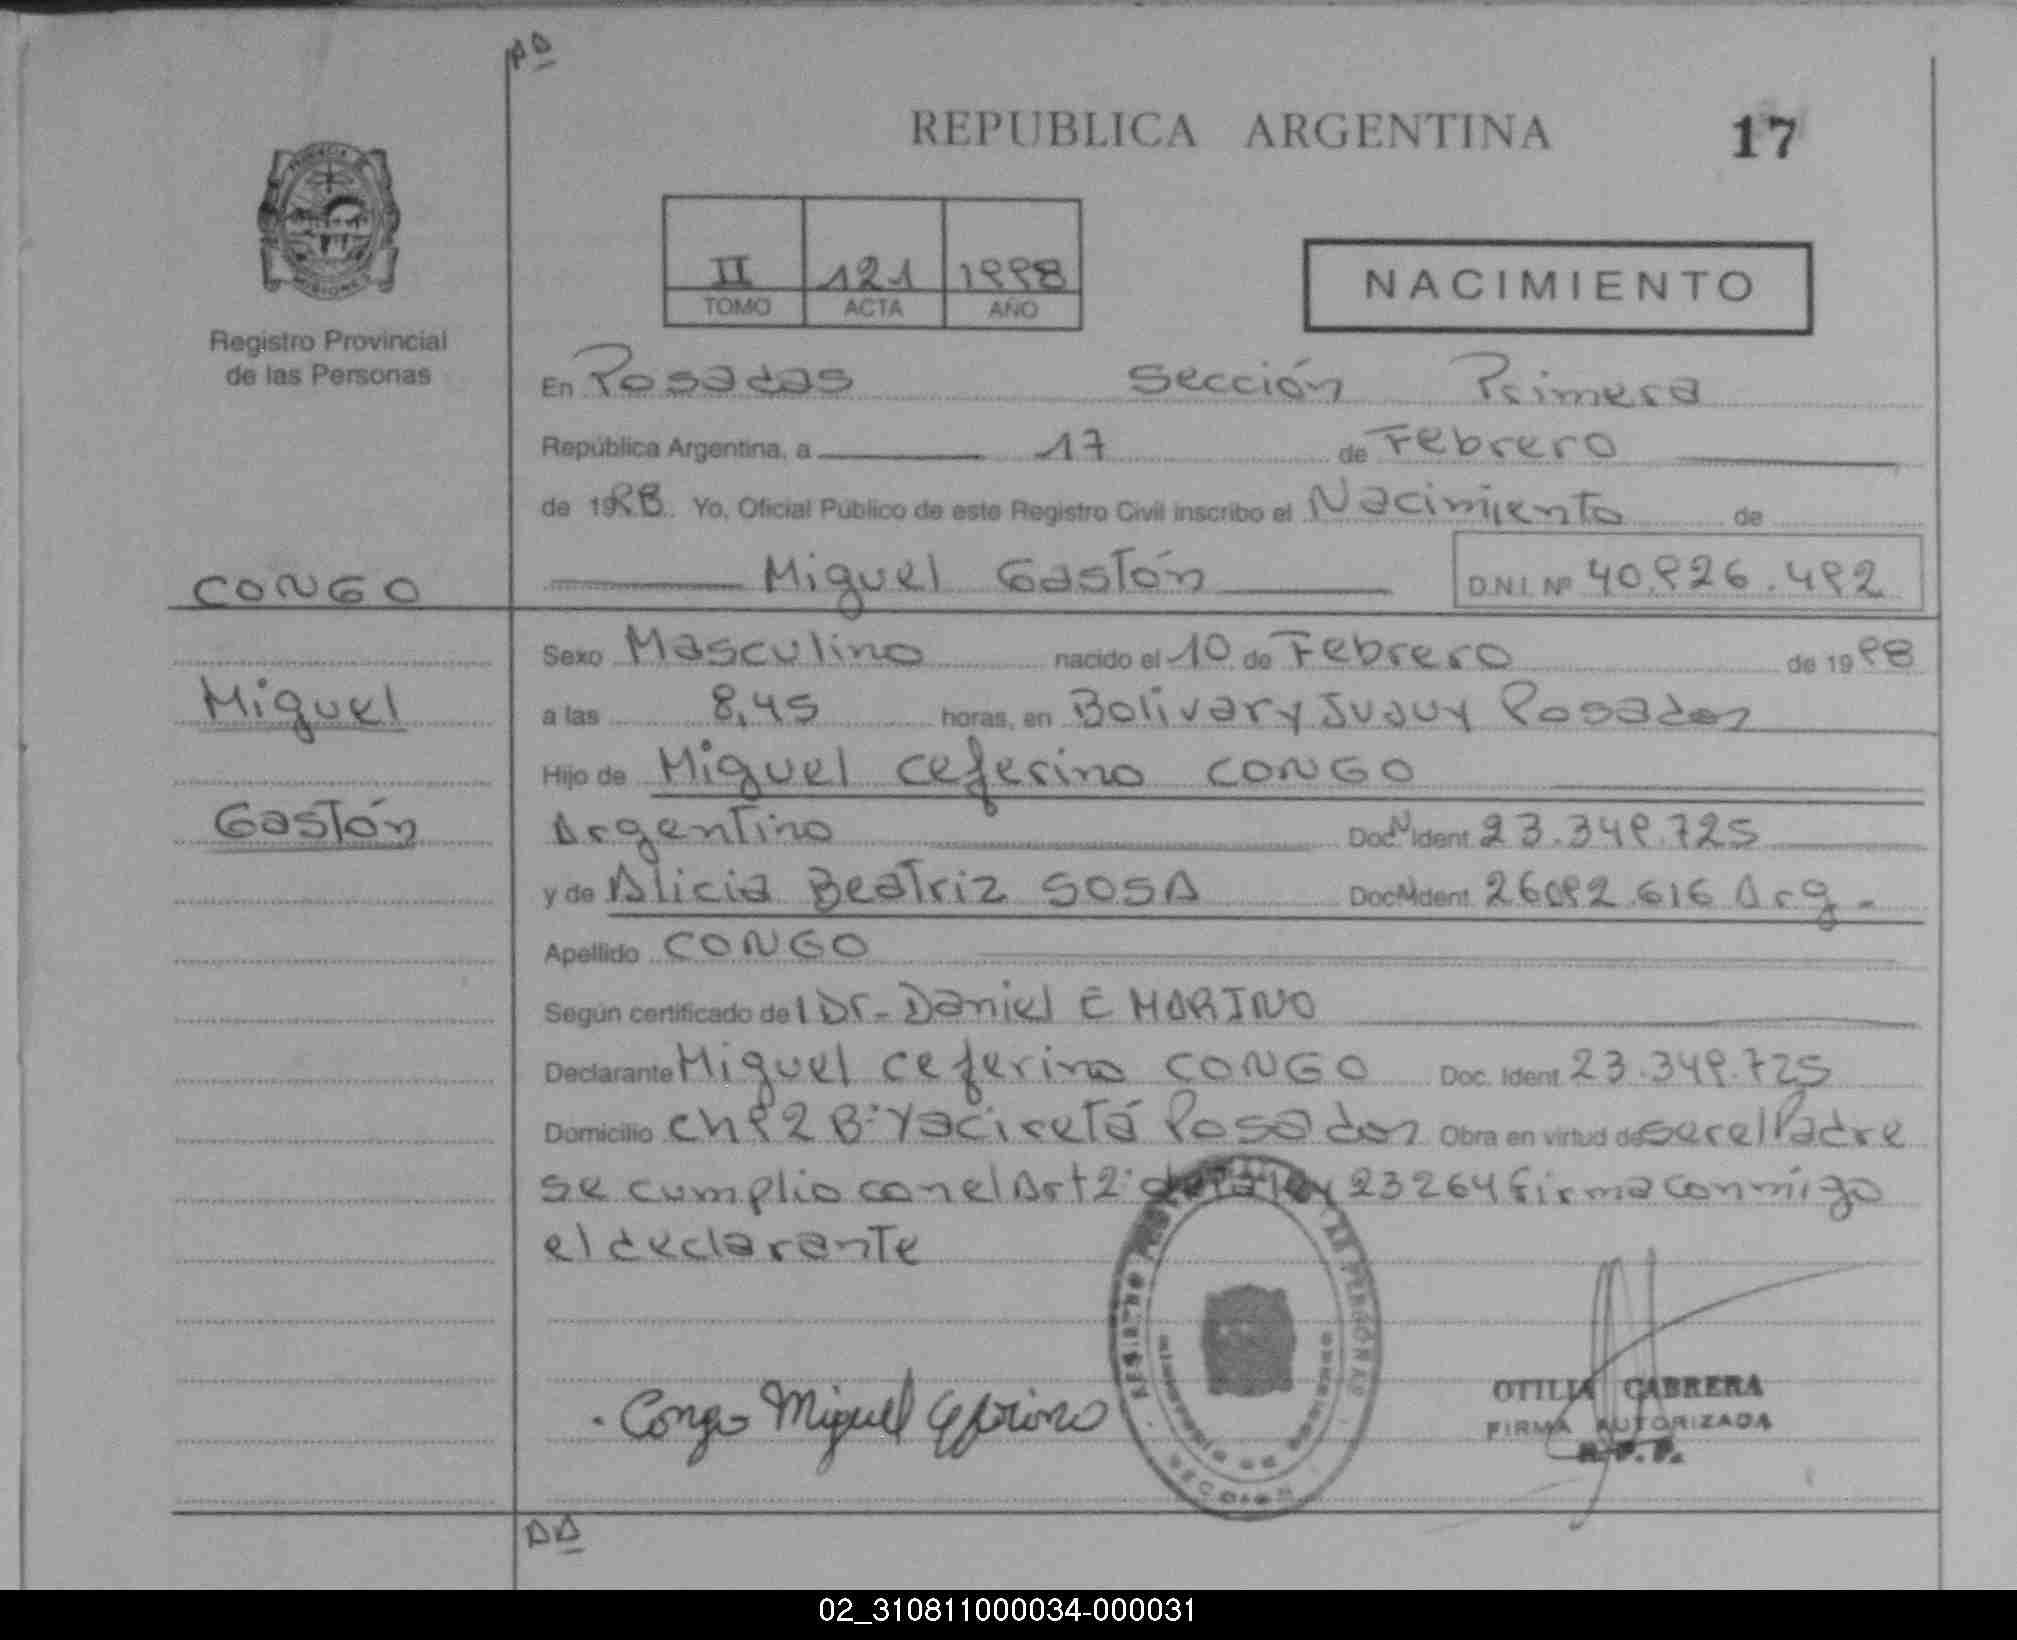 AD
REPUBLICA ARGENTINA 17
II 121 1998
TOMO ACTA AÑO
NACIMIENTO
Registro Provincial
de las Personas
En Posadas sección Primera
República Argentina, a 17 de Febrero
de 1998. Yo, Oficial Público de este Registro Civil inscribo el Nacimiento de
CONGO
Miguel Gastón D.N.I. Nº 40.926.492
Sexo Masculino nacido el 10 de Febrero de 1998
Miguel
a las 8,45 horas, en Bolivar y Jujuy Posadas
Hijo de Miguel Ceferino CONGO
Gastón
Argentino Doc N Ident. 23.349.725
y de Alicia Beatriz SOSA Doc N Ident. 26092.616 Arg.-
Apellido CONGO
Según certificado del Dr- Daniel E MARINO
Declarante Miguel Ceferino CONGO Doc. Ident. 23.349.725
Domicilio Ch 92 Bº Yaciretá Posadas Obra en virtud de ser el Padre
se cumplio con el Art 2º de la Ley 23264 firma conmigo
el declarante
Congo Miguel Ceferino
OTILIA CABRERA
FIRMA AUTORIZADA
AD
02_310811000034-000031